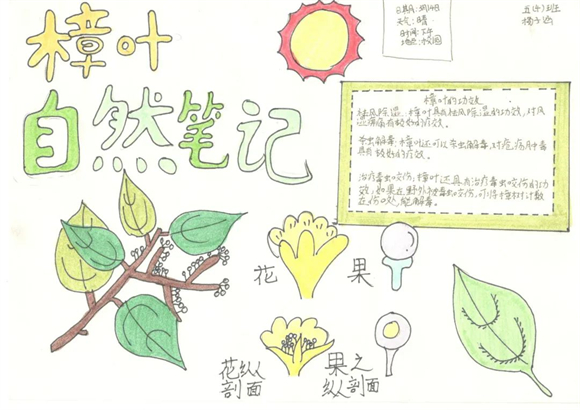 樟叶
自然笔记
天气:晴
时间:下午
地点:校园
樟叶的功效
祛风除湿,樟叶具有祛风除湿的功效,对风
有较好的疗效。
杀虫解毒,樟叶还可以杀虫解毒,对疮疡肿毒
具有较好的疗效。
治疗毒虫咬伤,樟叶还具有治疗毒虫咬伤的功
效,如果在野外被毒虫咬伤,可将樟树汁敷
在伤口处,能解毒。
花
果
花纵
剖面
果之
纵剖面